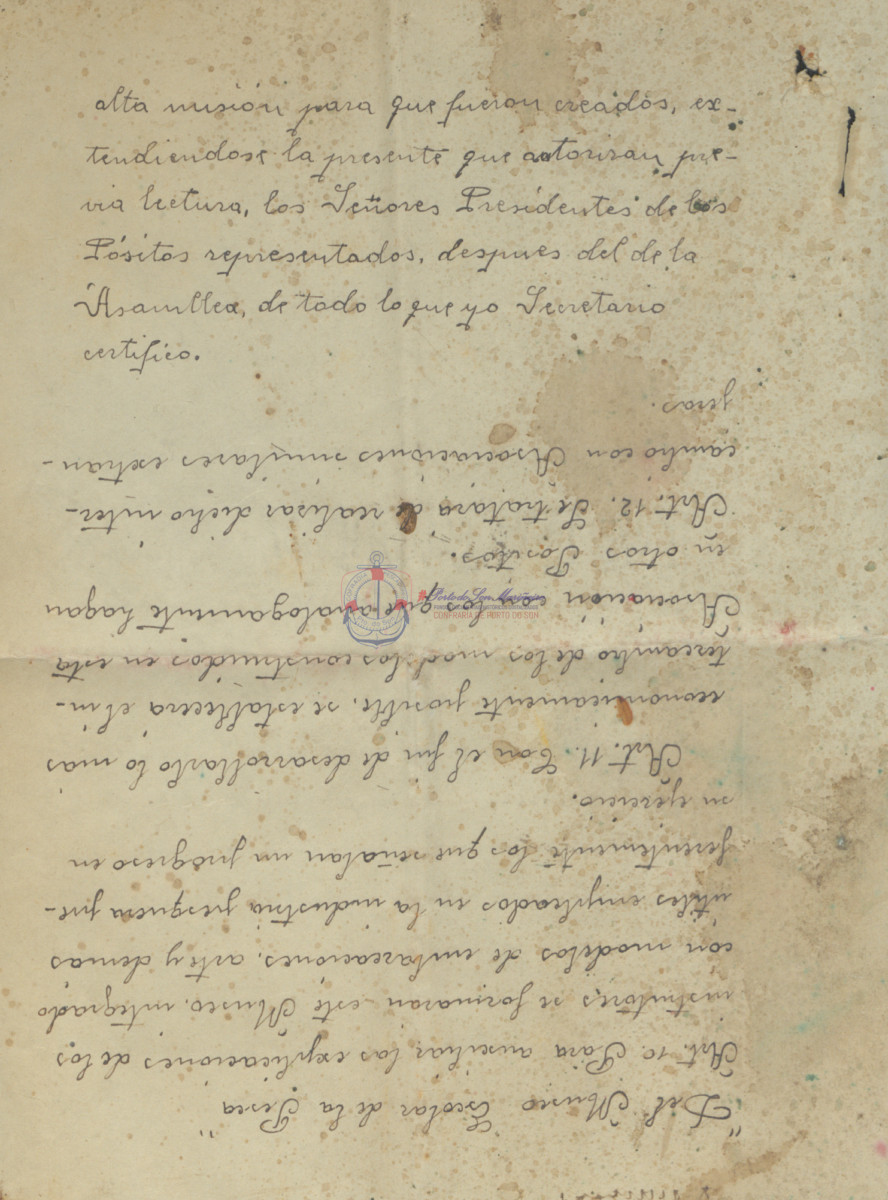 alta misión para que fueron creados, ex-
tendiendose la presente que autorisan pre-
via lectura, los Señores Presidentes de los
Pósitos representados, despues del de la
Asamblea, de todo lo que yo Secretario
certifico.
"Del Museo Escolar de la Pesca"
Art. 10. Para auxiliar las explicaciones de los
institutores se formaran este Museo, integrado
con modelos de embarcaciones, arte y demas
utiles empleados en la industria pesquera pre-
ferentemente los que señalan un progreso en
su ejercicio.
Art. 11. Con el fin de desarrollarlo lo mas
economicamente posible, se establecera el in-
tercambio de los modelos construidos en esta
Asociación con los que analogamente hagan
en otros Positos.
Art. 12. Se tratara de realisar dicho inter-
cambio con Asociaciones similares extran-
jeras.
Porto do Son
CONFRARIA DE PORTO DO SON